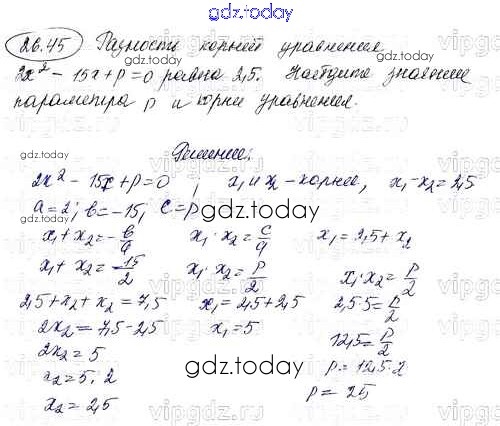 gdz.today
26.45 Разность корней уравнения
2x² - 15x + p = 0 равна 2,5. Найдите значение
параметра p и корни уравнения.
gdz.today
Решение:
2x² - 15x + p = 0 ; x₁ и x₂ - корни, x₁ - x₂ = 2,5
a = 2; b = -15; c = p
gdz.today
x₁ + x₂ = -b/a x₁ · x₂ = c/a x₁ = 2,5 + x₂
x₁ + x₂ = 15/2 x₁ · x₂ = p/2 x₁ · x₂ = p/2
2,5 + x₂ + x₂ = 7,5 x₁ = 2,5 + 2,5 2,5 · 5 = p/2
2x₂ = 7,5 - 2,5 x₁ = 5 12,5 = p/2
2x₂ = 5 p = 12,5 · 2
gdz.today
x₂ = 5 : 2 p = 25
x₂ = 2,5
vipgdz.today